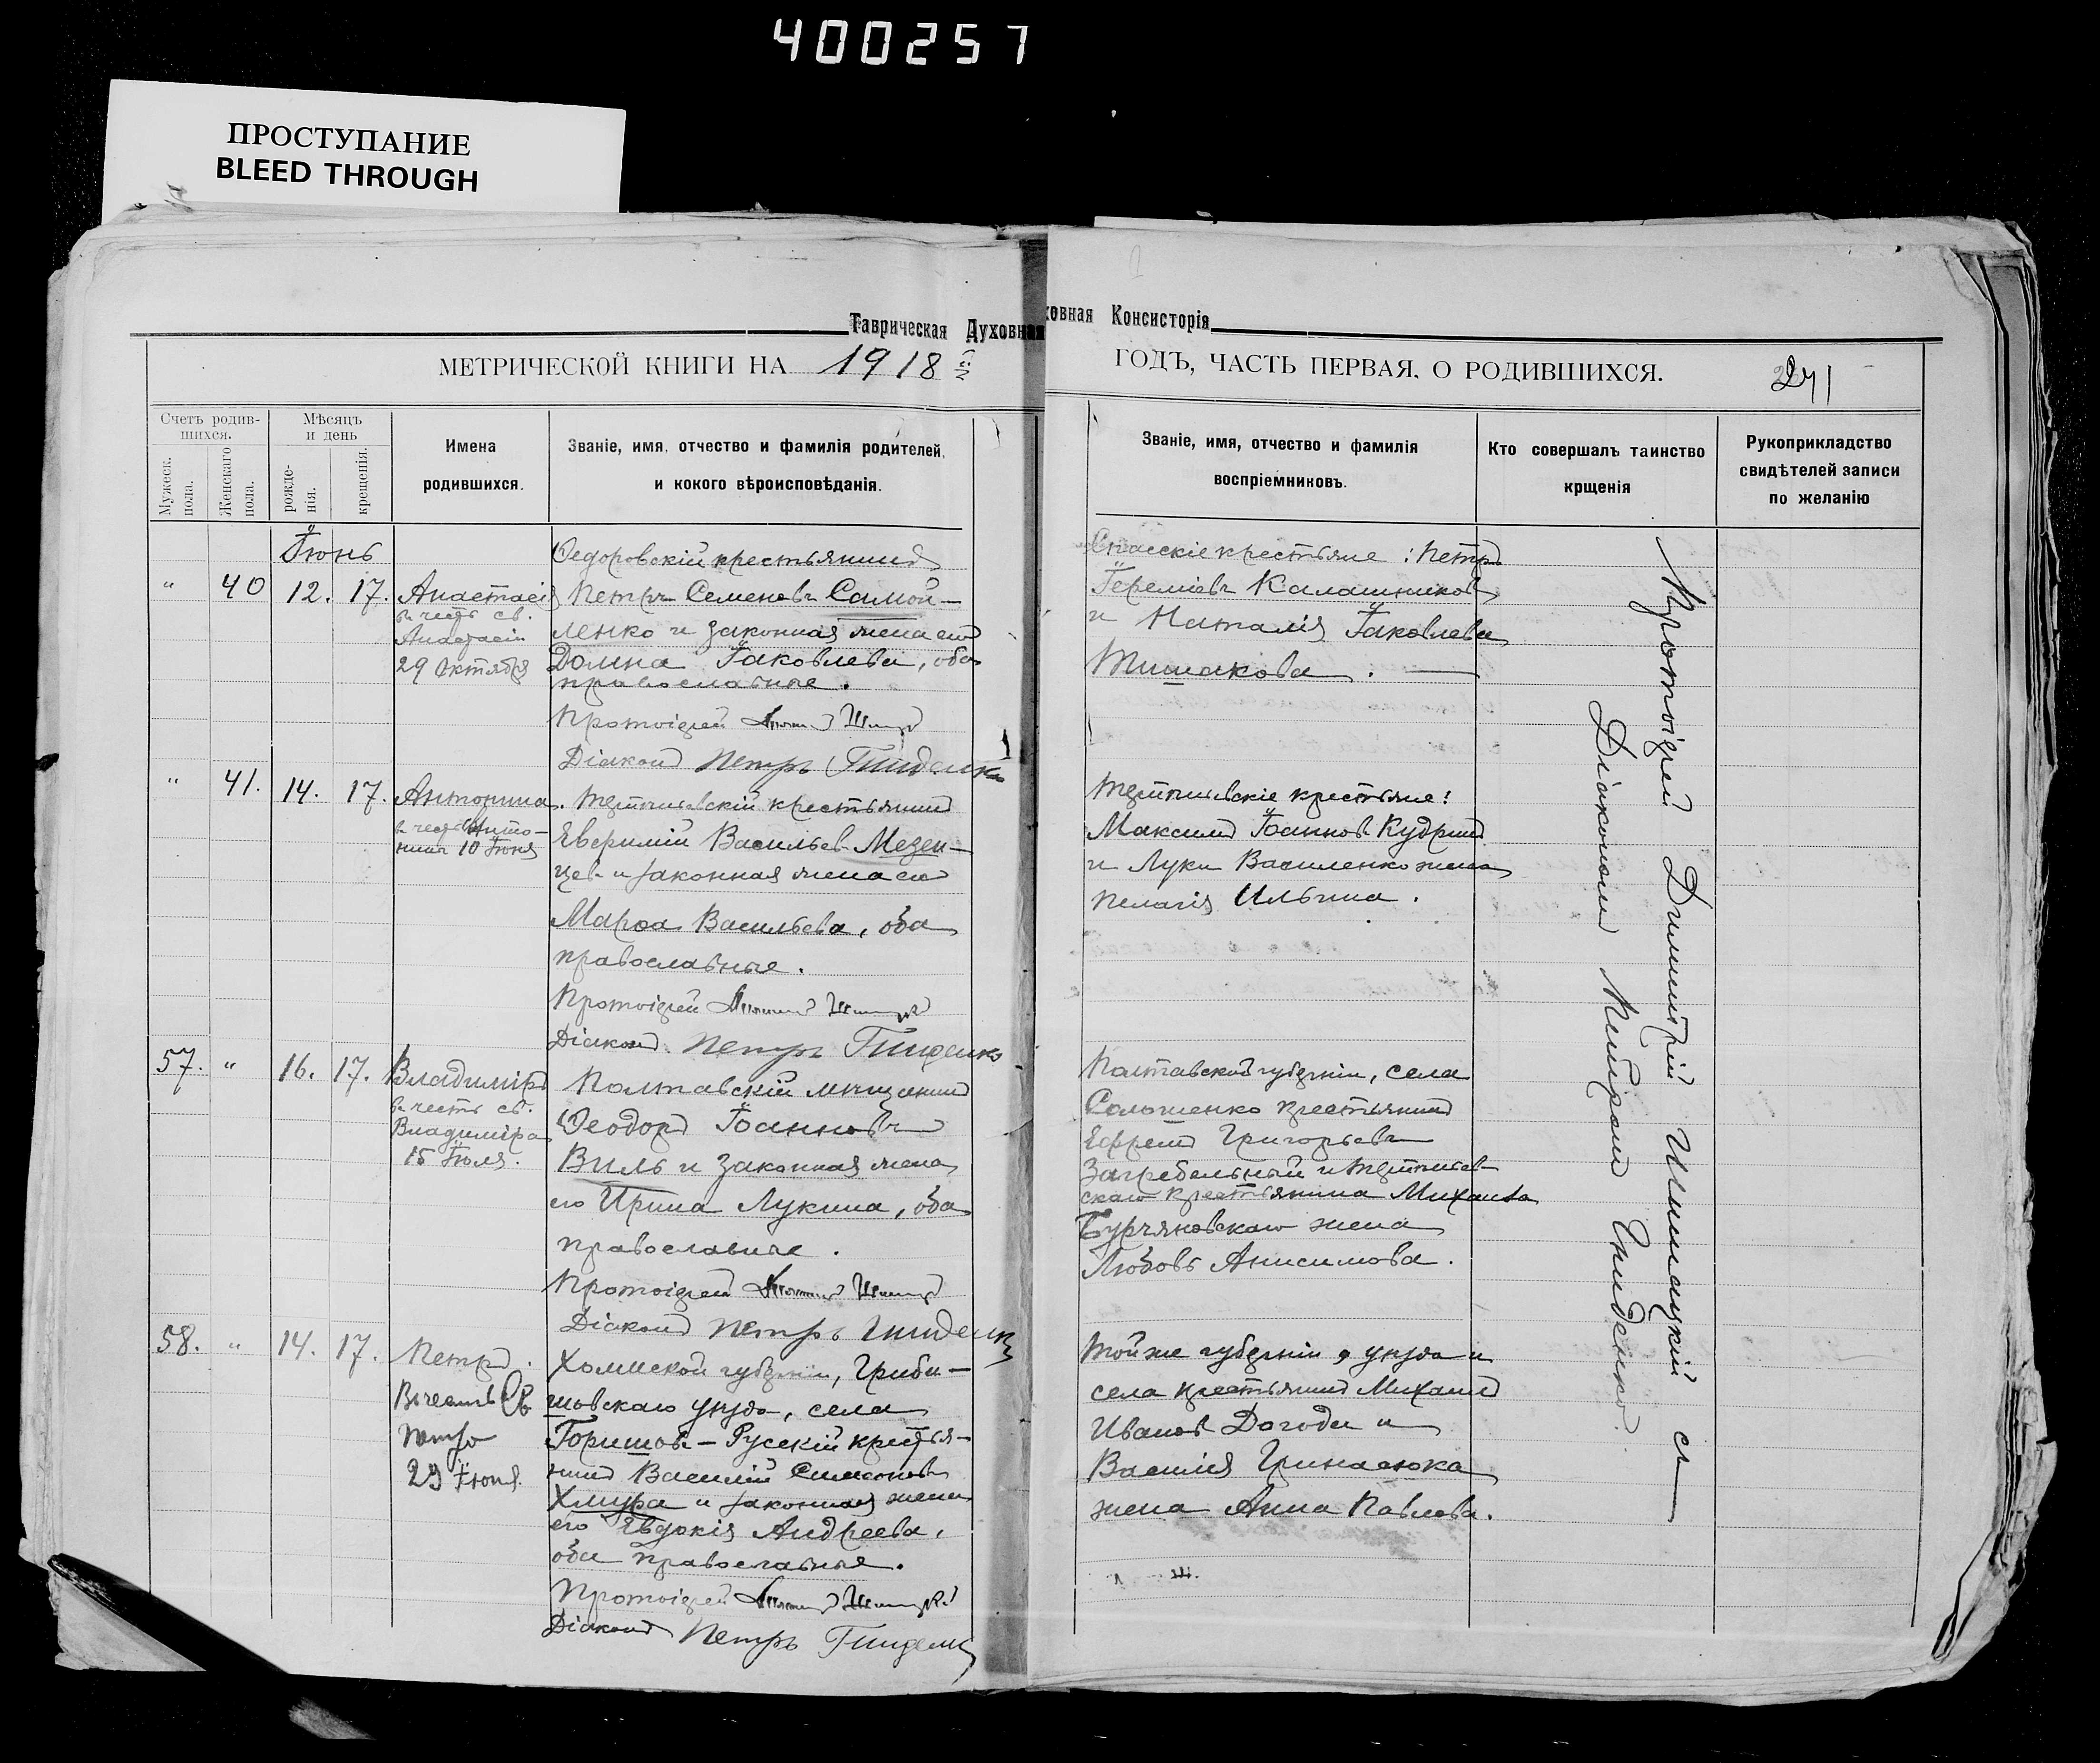 400257
ПРОСТУПАНИЕ
BLEED THROUGH
Таврическая Духовная
ховная Консисторія
МЕТРИЧЕСКОЙ КНИГИ НА 1918
ГОДЪ, ЧАСТЬ ПЕРВАЯ, О РОДИВШИХСЯ.
241
Счетъ родив-
шихся.
Мужеск.
пола.
Женскаго
пола.
Мѣсяцъ
и день
рожде-
нія.
крещенія.
Имена
родившихся.
Званіе, имя, отчество и фамилія родителей,
и кокого вѣроисповѣданія.
Званіе, имя, отчество и фамилія
воспріемниковъ.
Кто совершалъ таинство
крщенія
Рукоприкладство
свидѣтелей записи
по желанію
Іюнь
" 40 12. 17.
Анастасія
въ честь св.
Анастасіи
29 Октября
Ѳедоровскій крестьянинъ
Петръ Семеновъ Самой-
ленко и законная жена его
Домна Іаковлева, оба
православные.
Протоіерей
Діаконъ Петръ Гниденко
Спасскіе крестьяне: Петръ
Іереміевъ Калашниковъ
и Наталія Іаковлева
Тишакова.
" 41. 14. 17.
Антонина.
въ честь Анто-
нины 10 Іюня
крестьянинъ
Евфимій Васильевъ Мезен-
цевъ и законная жена его
Марѳа Васильева, оба
православные.
Протоіерей
Діаконъ Петръ Гниденко
крестьяне:
Максимъ Іоанновъ Кудринъ
и Луки Василенко жена
Пелагія Ильина.
57. " 16. 17.
Владиміръ
въ честь св.
Владиміра
15 Іюля.
Полтавскій мѣщанинъ
Ѳеодоръ Іоанновъ
Виль и законная жена
его Ирина Лукина, оба
православные.
Протоіерей
Діаконъ Петръ Гниденко
Полтавской губерніи, села
крестьянинъ
Ефремъ Григорьевъ
Загребельный и
скаго крестьянина Михаила
Бурчяновскаго жена
Любовь Анисимова.
58. " 14. 17.
Петръ.
Въ честь Св
Петра
29 Іюня.
Холмской губерніи, Груби-
шовскаго уѣзда, села
Горишовъ-Русскій крестья-
нинъ Василій Симеоновъ
Хмура и законная жена
его Евдокія Андреева,
оба православные.
Протоіерей
Діаконъ Петръ Гниденко
Той же губерніи, уѣзда и
села крестьянинъ Михаилъ
Ивановъ Догода и
Василія Гринасюка
жена Анна Павлова.
Протоіерей Димитрій съ
Діакономъ Петромъ Гниденко.